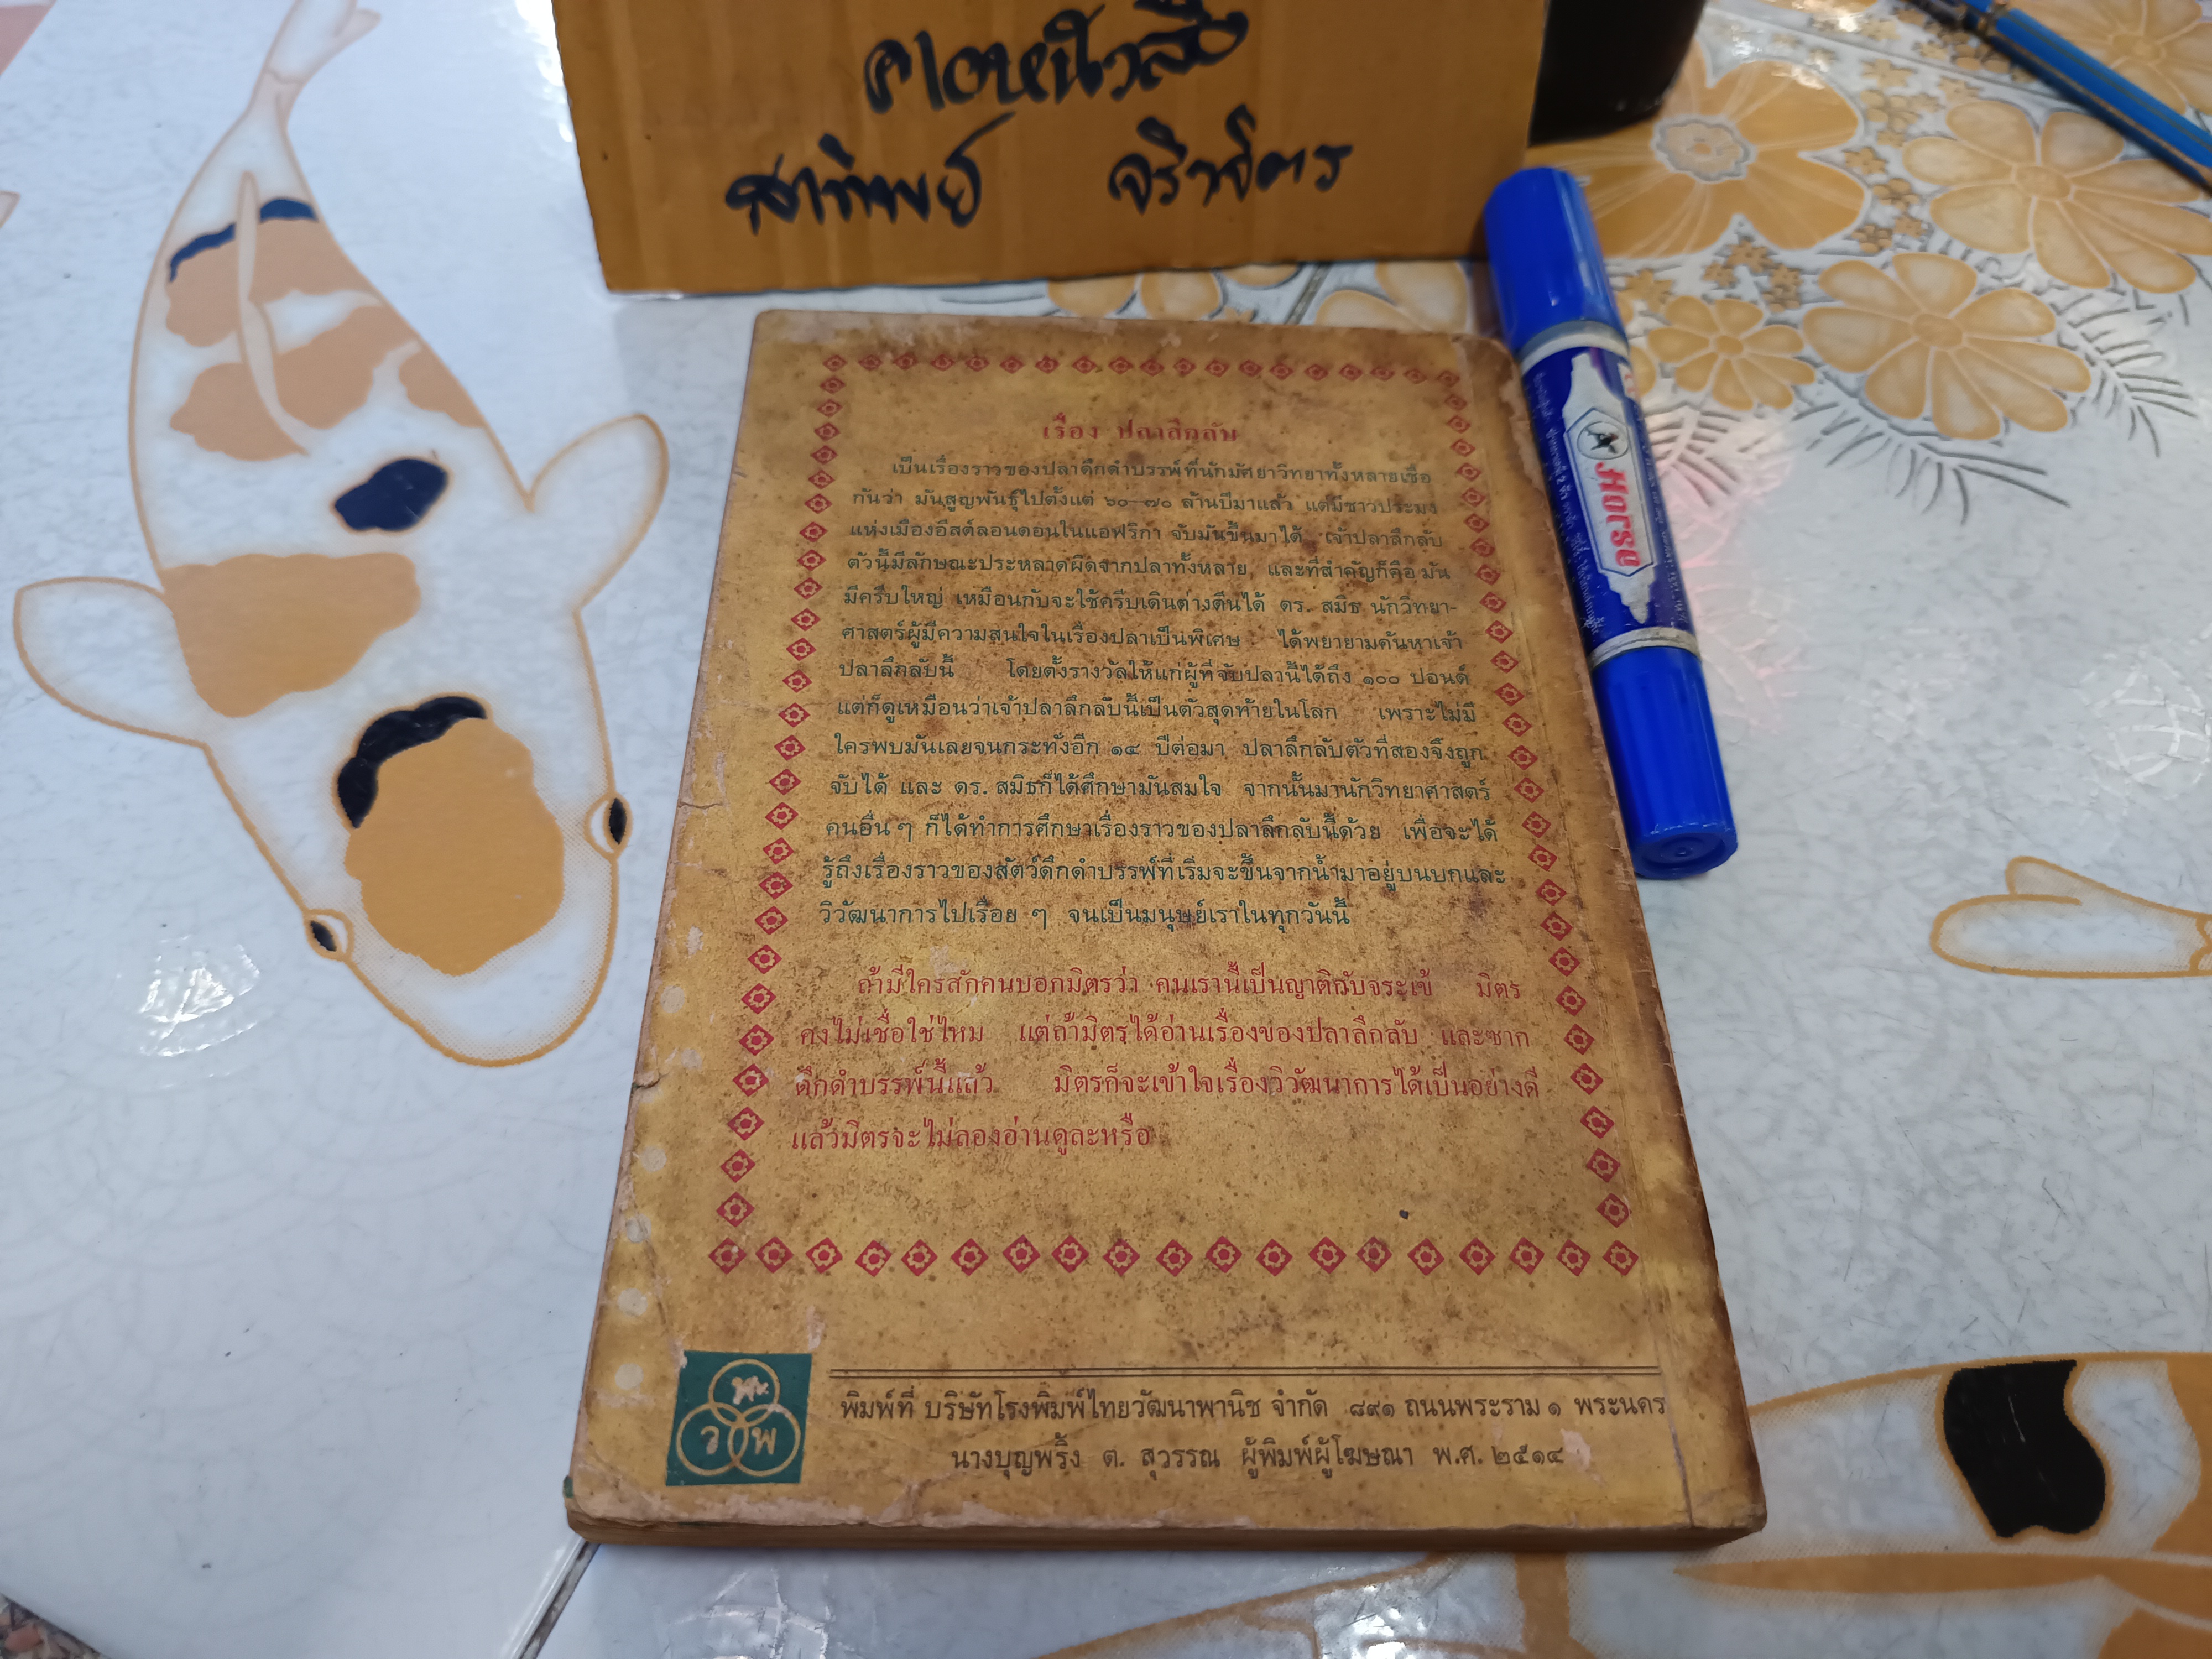 สาทิพย์ จริวจิตร
เรื่อง ปลาลึกลับ
เป็นเรื่องราวของปลาดึกดำบรรพ์ที่นักมัศยาวิทยาทั้งหลายเชื่อ
กันว่า มันสูญพันธุ์ไปตั้งแต่ ๖๐—๗๐ ล้านปีมาแล้ว แต่มีชาวประมง
แห่งเมืองอีสต์ลอนดอนในแอฟริกา จับมันขึ้นมาได้ เจ้าปลาลึกลับ
ตัวนี้มีลักษณะประหลาดผิดจากปลาทั้งหลาย และที่สำคัญก็คือ มัน
มีครีบใหญ่ เหมือนกับจะใช้ครีบเดินต่างตีนได้ ดร. สมิธ นักวิทยา-
ศาสตร์ผู้มีความสนใจในเรื่องปลาเป็นพิเศษ ได้พยายามค้นหาเจ้า
ปลาลึกลับนี้ โดยตั้งรางวัลให้แก่ผู้ที่จับปลานี้ได้ถึง ๑๐๐ ปอนด์
แต่ก็ดูเหมือนว่าเจ้าปลาลึกลับนี้เป็นตัวสุดท้ายในโลก เพราะไม่มี
ใครพบมันเลยจนกระทั่งอีก ๑๔ ปีต่อมา ปลาลึกลับตัวที่สองจึงถูก
จับได้ และ ดร. สมิธก็ได้ศึกษามันสมใจ จากนั้นมานักวิทยาศาสตร์
คนอื่น ๆ ก็ได้ทำการศึกษาเรื่องราวของปลาลึกลับนี้ด้วย เพื่อจะได้
รู้ถึงเรื่องราวของสัตว์ดึกดำบรรพ์ที่เริ่มจะขึ้นจากน้ำมาอยู่บนบกและ
วิวัฒนาการไปเรื่อย ๆ จนเป็นมนุษย์เราในทุกวันนี้
ถ้ามีใครสักคนบอกมิตรว่า คนเรานี้เป็นญาติกับจระเข้ มิตร
คงไม่เชื่อใช่ไหม แต่ถ้ามิตรได้อ่านเรื่องของปลาลึกลับ และซาก
ดึกดำบรรพ์นี้แล้ว มิตรก็จะเข้าใจเรื่องวิวัฒนาการได้เป็นอย่างดี
แล้วมิตรจะไม่ลองอ่านดูละหรือ
ว พ
พิมพ์ที่ บริษัทโรงพิมพ์ไทยวัฒนาพานิช จำกัด ๘๙๑ ถนนพระราม ๑ พระนคร
นางบุญพริ้ง ต. สุวรรณ ผู้พิมพ์ผู้โฆษณา พ.ศ. ๒๕๑๔
ตราม้า